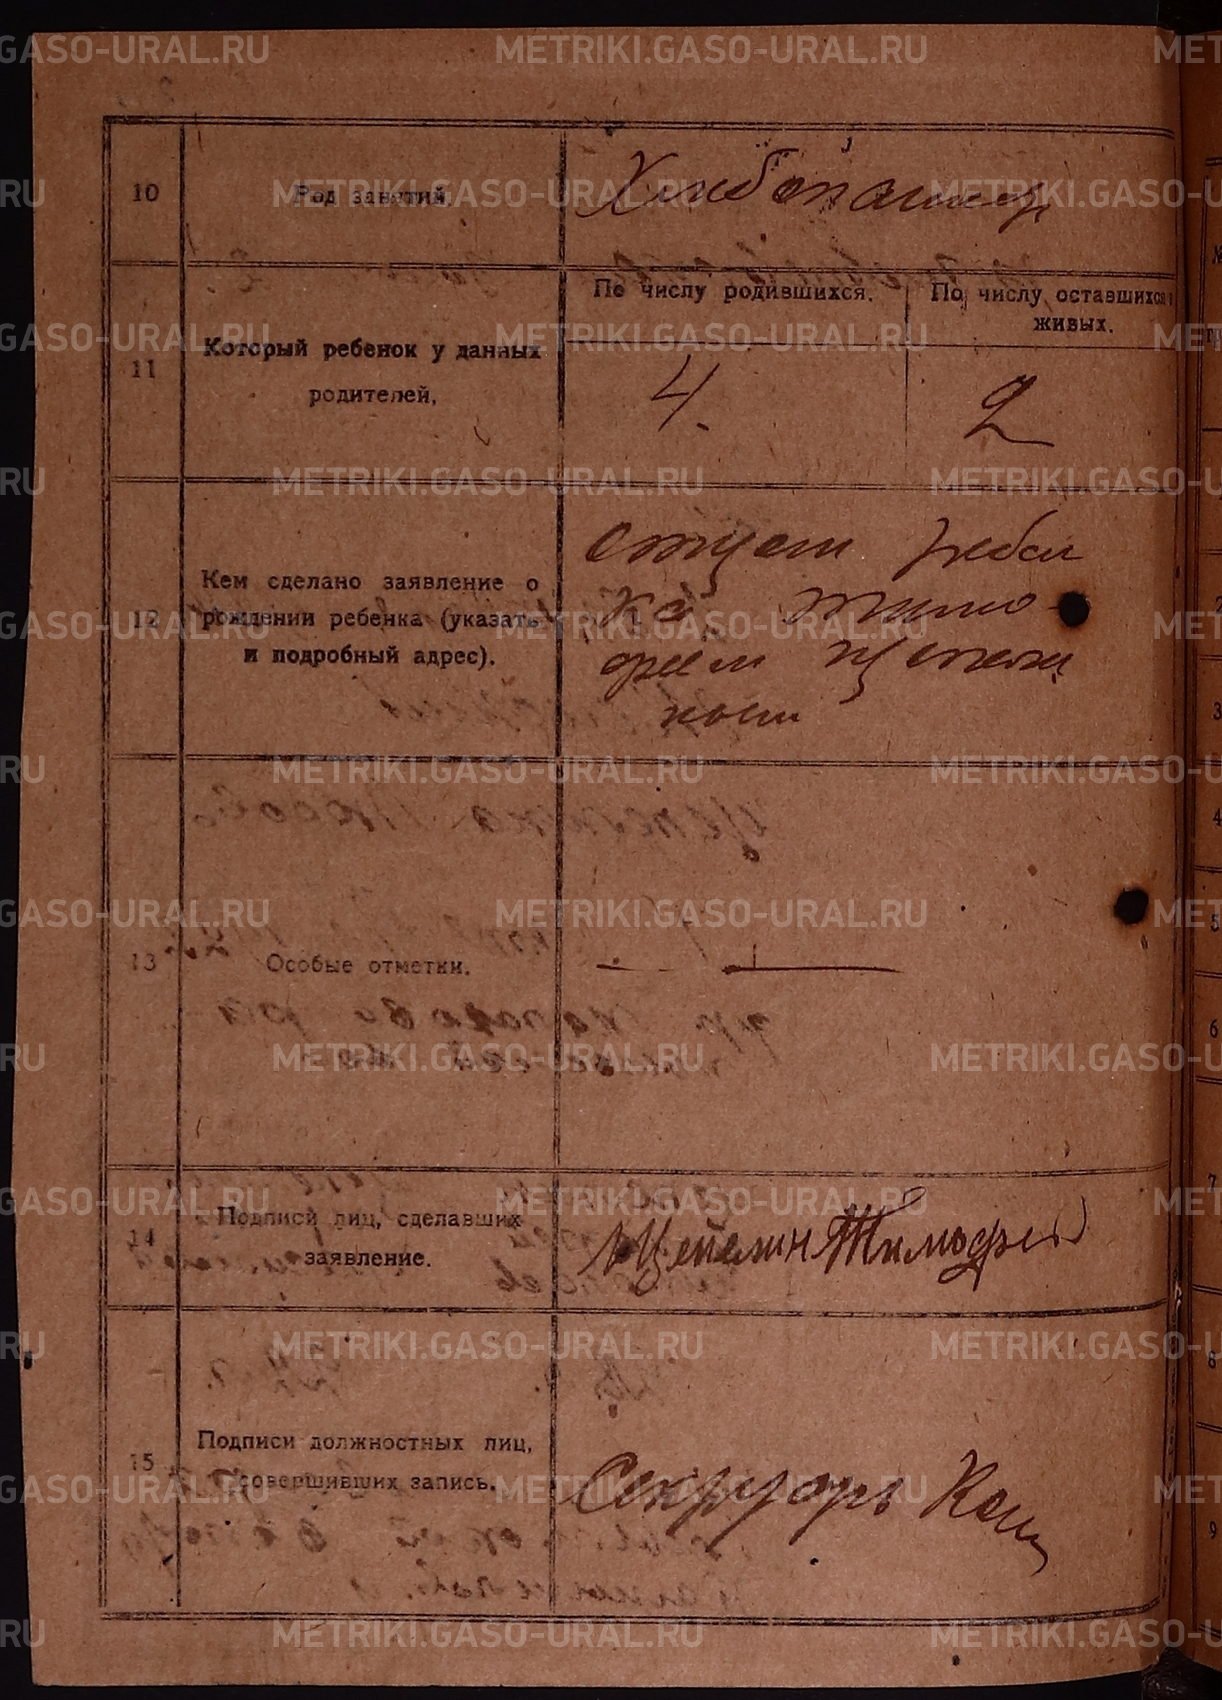 10
Род занятий.
Хлебопашец
11
Который ребенок у данных
родителей,
По числу родившихся.
По числу оставшихся
живых.
4.
2
12
Кем сделано заявление о
рождении ребенка (указать
и подробный адрес).
отцом ребен
ка Тимо-
феем
13
Особые отметки.
14
Подписи лиц, сделавших
заявление.
Тимофей
15
Подписи должностных лиц,
совершивших запись.
Секретарь
METRIKI.GASO-URAL.RU